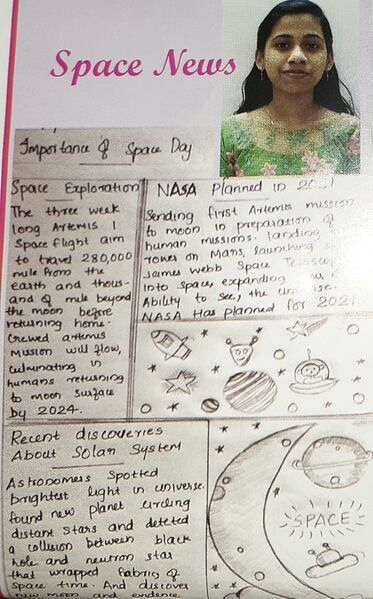 Space News
Importance of Space Day
Space Exploration
The three week
long Artemis 1
Space flight aim
to travel 280,000
mile from the
earth and thous-
and of mile beyond
the moon before
returning home.
Crewed artemis
Mission will flow,
culminating in
humans returning
to moon surface
by 2024.
NASA Planned in 2021
Sending first Artemis mission
to moon in preparation of
human missions. landing
rover on Mars, launching
James webb Space
into Space, expanding
Ability to see, the
NASA Has planned for 2021
Recent discoveries
About Solar System
Astronomers Spotted
brightest light in universe.
found new planet circling
distant Stars and deteted
a collision between black
hole and neutron star
that wrapped fabric of
Space time. And discover
new moon and evidence
SPACE